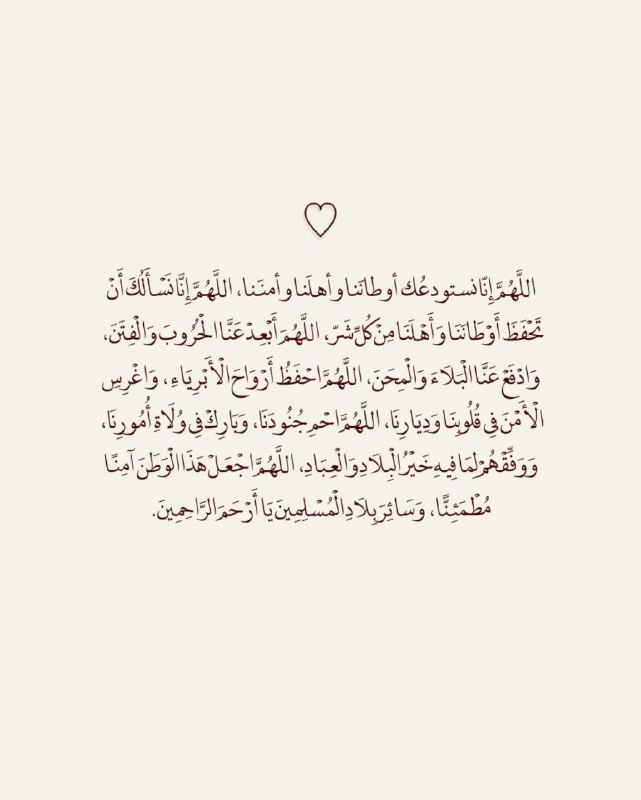 اللَّهُمَّ إِنّا نستودعُك أوطانَنا وأهلَنا وأمنَنا، اللَّهُمَّ إِنَّا نَسْأَلُكَ أَنْ
تَحْفَظَ أَوْطَانَنَا وَأَهْلَنَا مِنْ كُلِّ شَرّ، اللَّهُمَ أَبْعِدْ عَنَّا الْحُرُوبَ وَالْفِتَنَ،
وَادْفَعْ عَنَّا الْبَلَاءَ وَالْمِحَنَ، اللَّهُمَّ احْفَظُ أَرْوَاحَ الْأَبْرِيَاءِ، وَاغْرِسِ
الْأَمْنَ فِي قُلُوبِنَا وَدِيَارِنَا، اللَّهُمَّ احْمِ جُنُودَنَا، وَبَارِكْ فِي وُلَاةِ أُمُورِنَا،
وَوَفِّقْهُمْ لِمَا فِيهِ خَيْرُ الْبِلَادِ وَالْعِبَادِ، اللَّهُمَّ اجْعَلْ هَذَا الْوَطَنَ آمِنًا
مُطْمَئِنًّا، وَسَائِرَ بِلَادِ الْمُسْلِمِينَ يَا أَرْحَمَ الرَّاحِمِينَ.